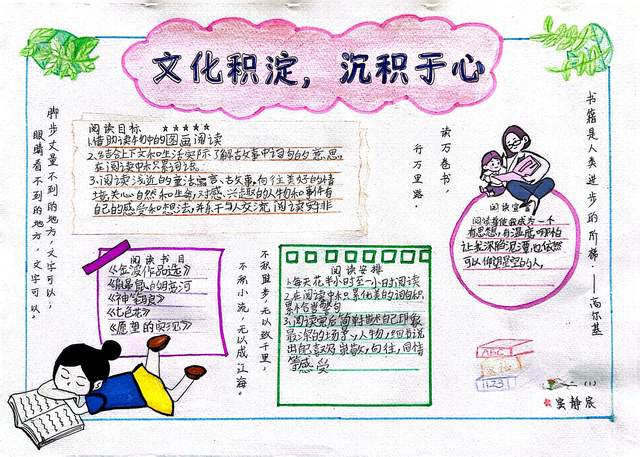 文化积淀，沉积于心
脚步丈量不到的地方，文字可以；
眼睛看不到的地方，文字可以。
阅读目标 ★★★★★
1.借助读物中的图画阅读
2.结合上下文和生活实际了解古故事中词句的意思，
在阅读中积累词语。
3.阅读浅近的童话寓言、古故事，向往美好的情
境，关心自然和生命，对感兴趣的人物和事件有
自己的感受和想法，并乐于与人交流
读万卷书，
行万里路。
书籍是人类进步的阶梯。——高尔基
阅读宣言
阅读势使我成为一个
有思想，有温度，哪怕
让我深陷泥潭也依然
可以仰望星空的人，
阅读书目
《金波作品选》
《神笔马良》
《七色花》
《愿望的实现》
不积跬步，无以致千里，
不积小流，无以成江海。
阅读安排
1.每天花半小时至一小时阅读
2.在阅读中积累优美的词句积
累不含警句
3.阅读完后简单描述自己印象
最深的场景、人物，细节说
出自己喜欢及崇敬，向往，同情
等感受
ABC
1123
(1)